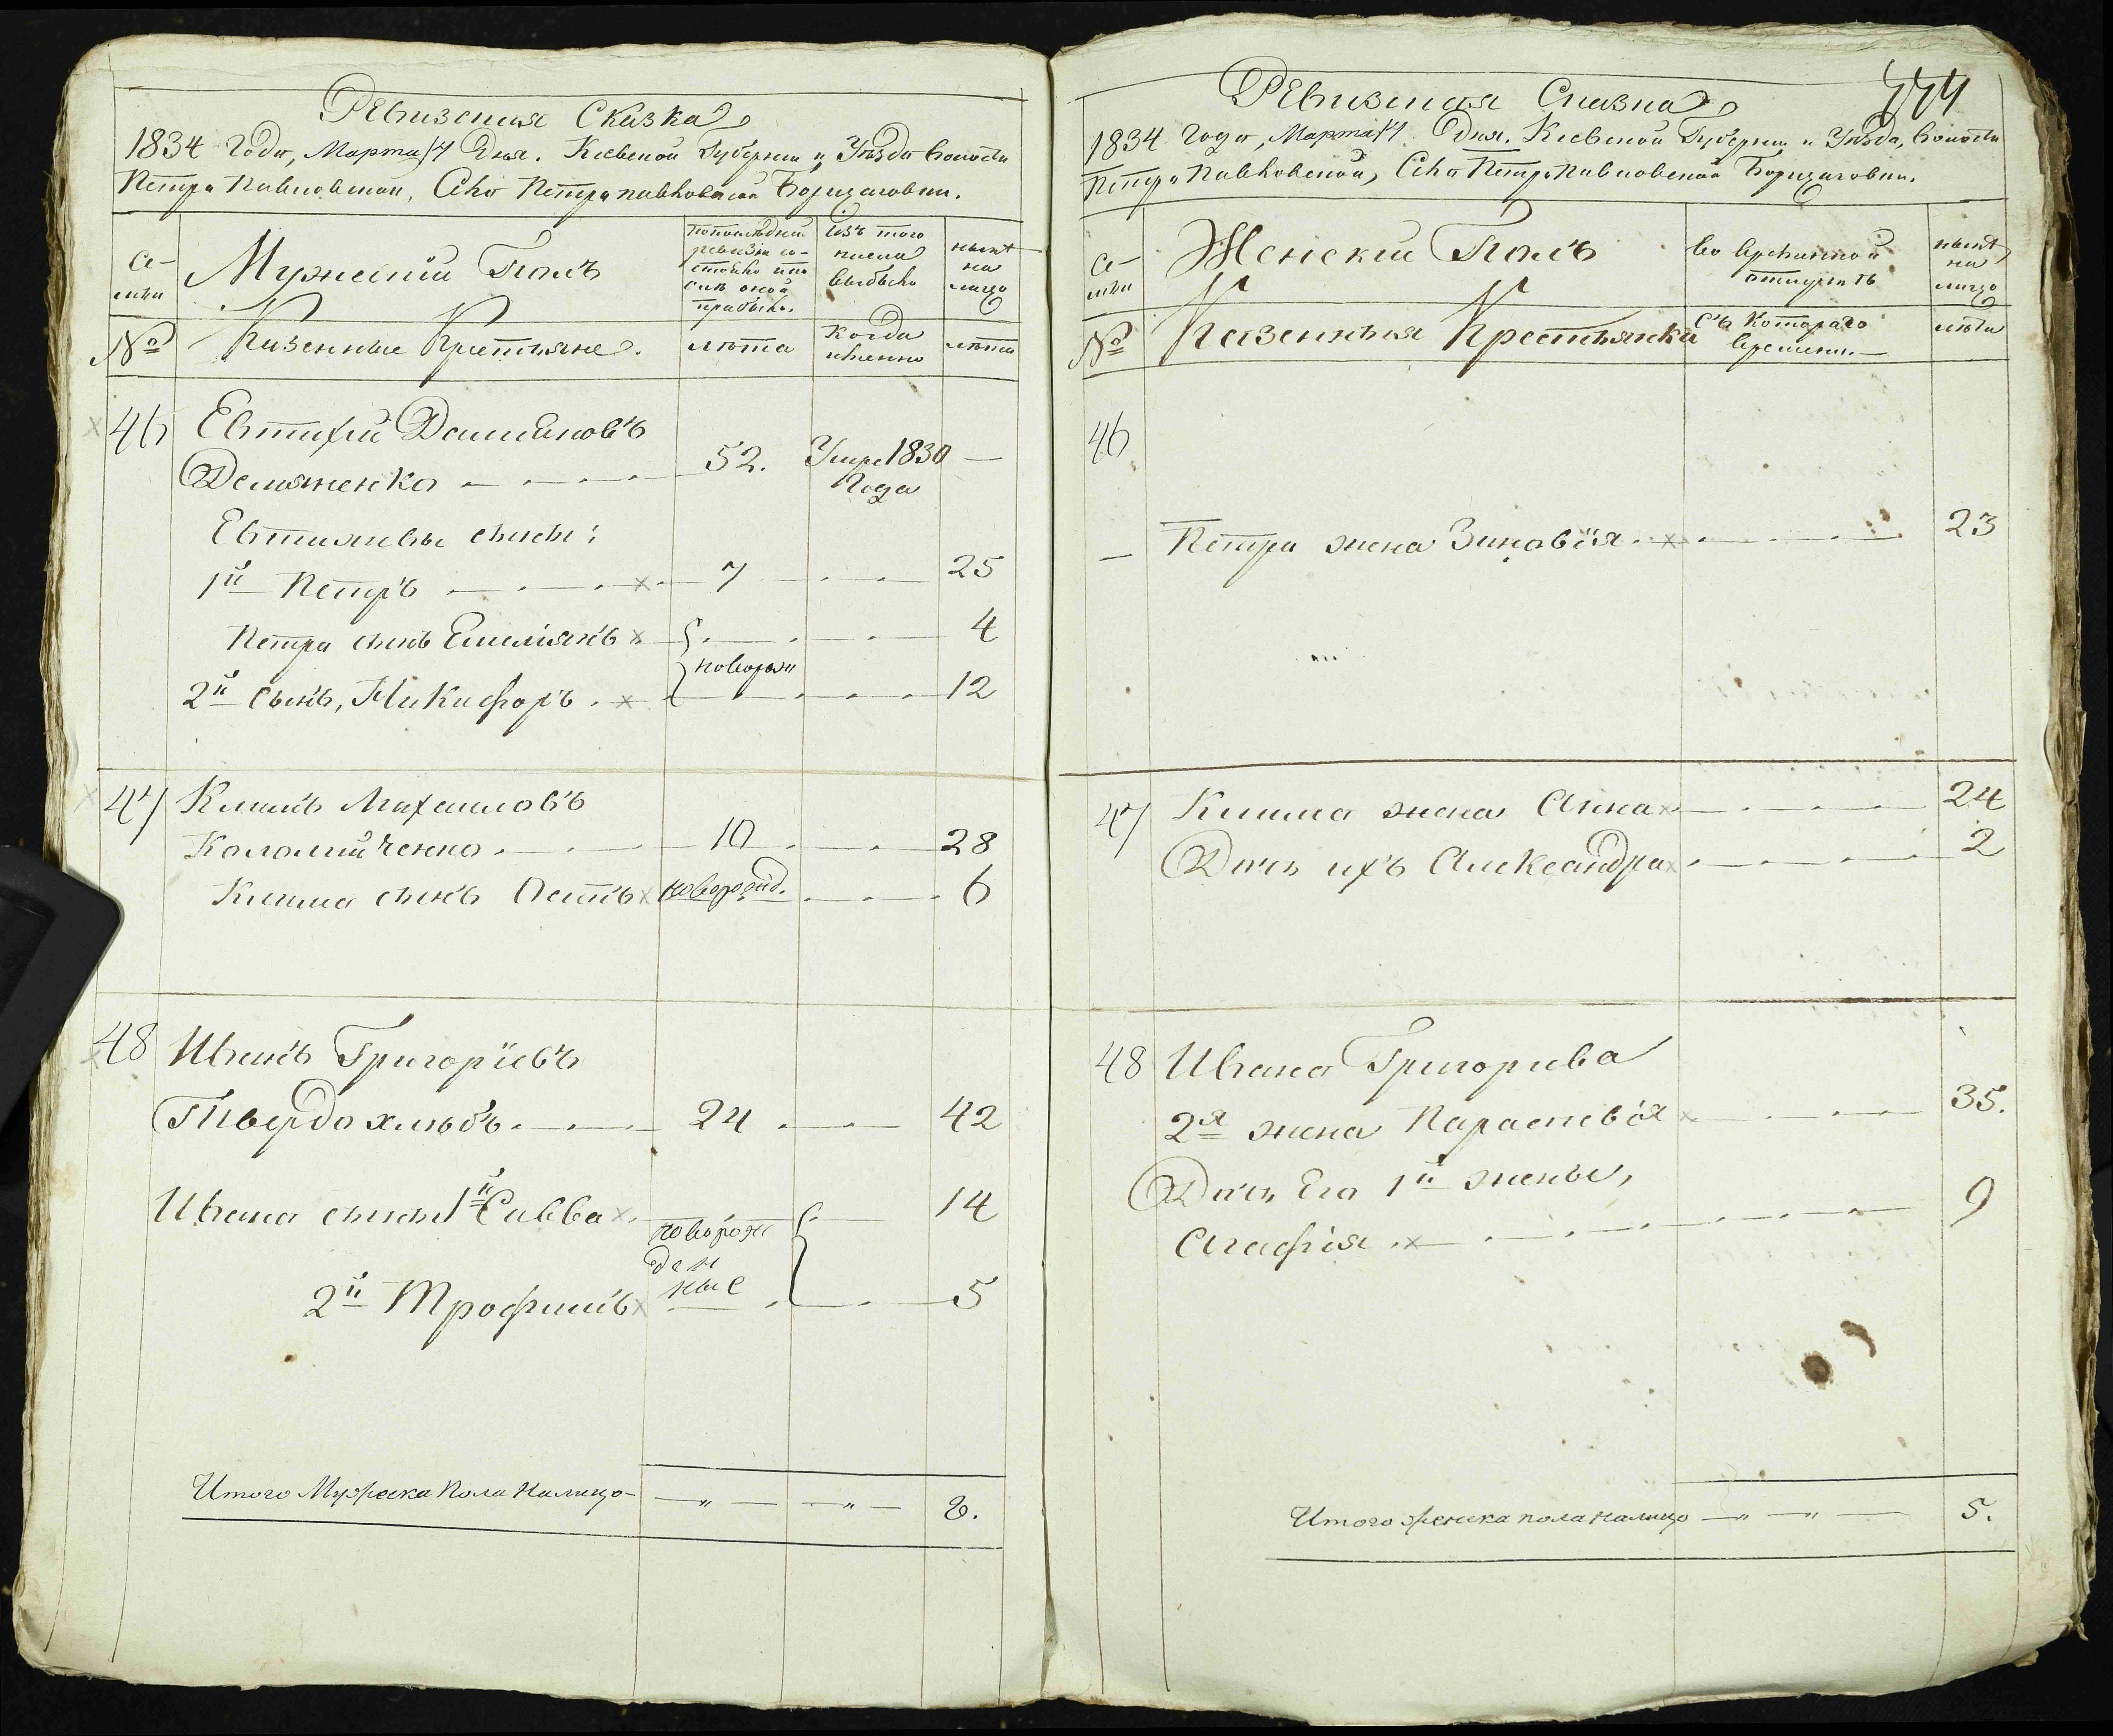 Ревизская Сказка
1834 Года, Марта 14 Дня. Киевской Губернии и Уѣзда волости
Петро Павловской, Села Петропавловской Борщаговки.
Се-
мьи
Мужескій Полъ
По последней
ревизіи со-
стояло и по
слѣ оной
прибыло.
Изъ того
числа
выбыло
нынѣ
на
лицо
№
Казенные Крестьяне.
лѣта
Когда
именно
лѣта
46
Евтихій Даміановъ
Демяненко
52.
Умре 1830
Года
Евтихіевы сыны:
1й Петръ
7
25
Петра сынъ Емеліянъ
4
новорож
2й Сынъ, Никифоръ
12
47
Климъ Михаиловъ
Коломийченко
10
28
Клима сынъ Остапъ
новорожд.
6
48
Иванъ Григоріевъ
Твердохлѣбъ
24
42
Ивана сыны 1й Савва
14
новорож
ден
ные
2й Трофимъ
5
Итого Мужеска пола налицо
8.
444
Ревизская Сказка
1834 Года, Марта 14 Дня. Киевской Губернии и Уѣзда, волости
Петро Павловской, Села Петропавловской Борщаговки.
Се-
мьи
Женскій Полъ
Во временной
отлучкѣ
нынѣ
на
лицо
№
Казенныя Крестьянки
Съ Котораго
времени.
лѣта
46
Петра жена Зиновія
23
47
Клима жена Анна
24
Дочь ихъ Александра
2
48
Ивана Григориева
2я жена Параскевія
35.
Дочь Его 1й жены,
Агафія
9
Итого женска пола налицо
5.